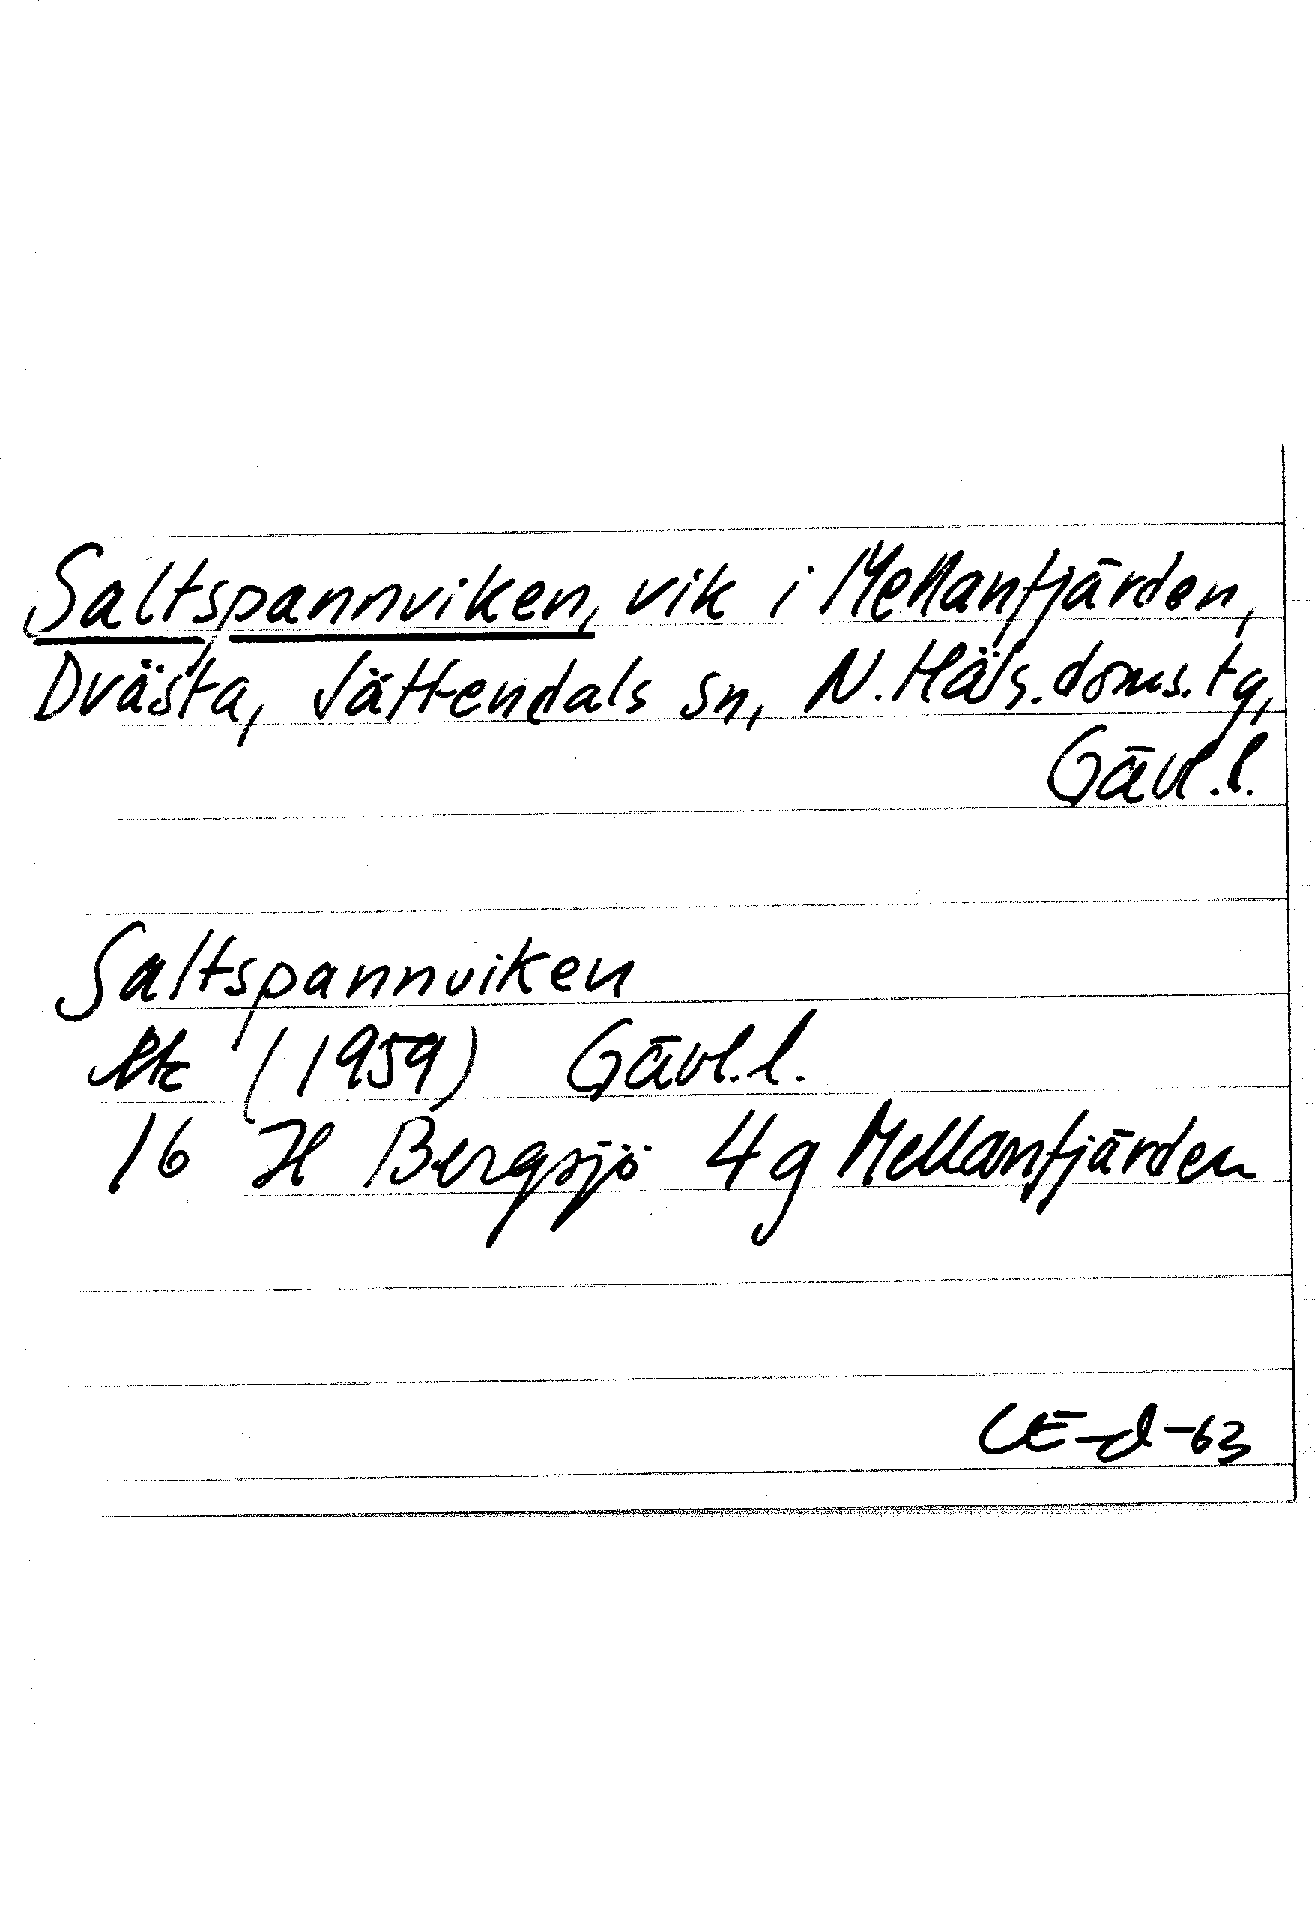 Saltspannviken, vik i Mellanfjärden,
Dvästa, Jättendals sn, N. Häls. doms. tg,
Gävl. l.
Saltspannviken
(1959) Gävl. l.
16 H Bergsjö 4g Mellanfjärden
CE-d-63